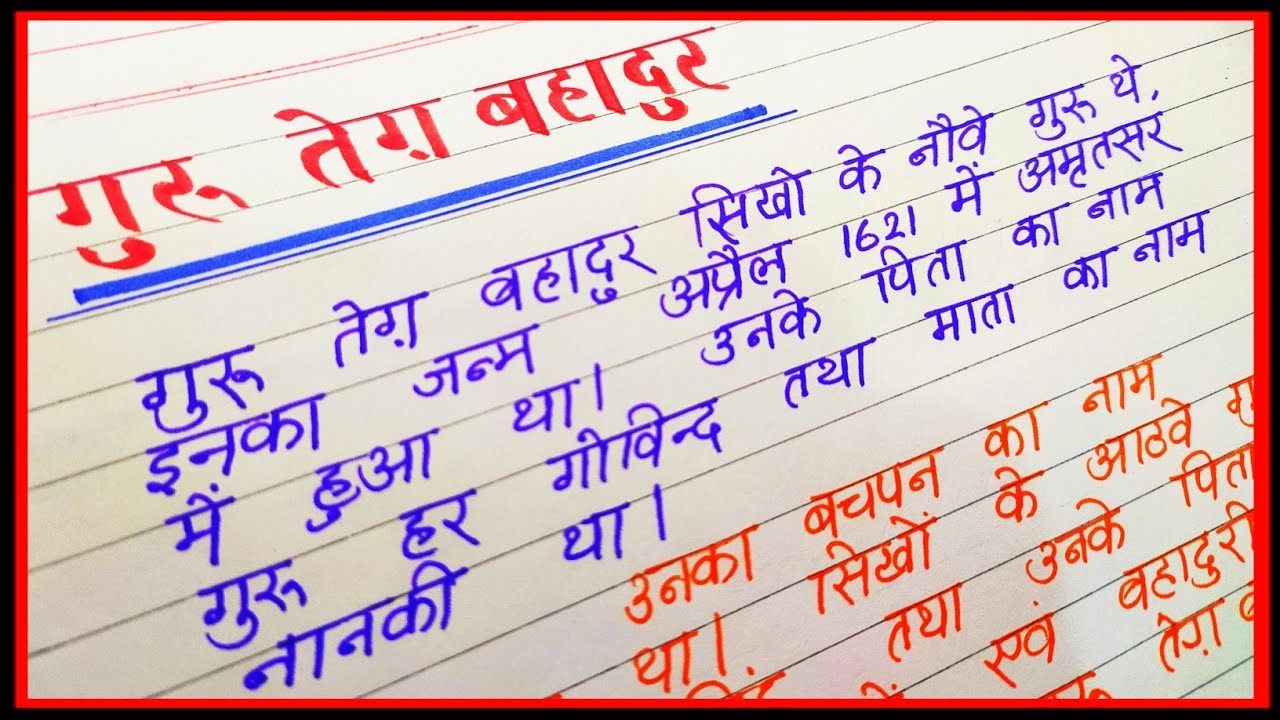 गुरू तेग़ बहादुर
गुरू तेग़ बहादुर सिखो के नौवे गुरू थे,
इनका जन्म अप्रैल 1621 में अमृतसर
में हुआ था। उनके पिता का नाम
गुरू हर गोविन्द तथा माता का नाम
नानकी था।
उनका बचपन का नाम
था। सिखों के आठवे
तथा उनके पिता
एवं बहादुरी
तेग़